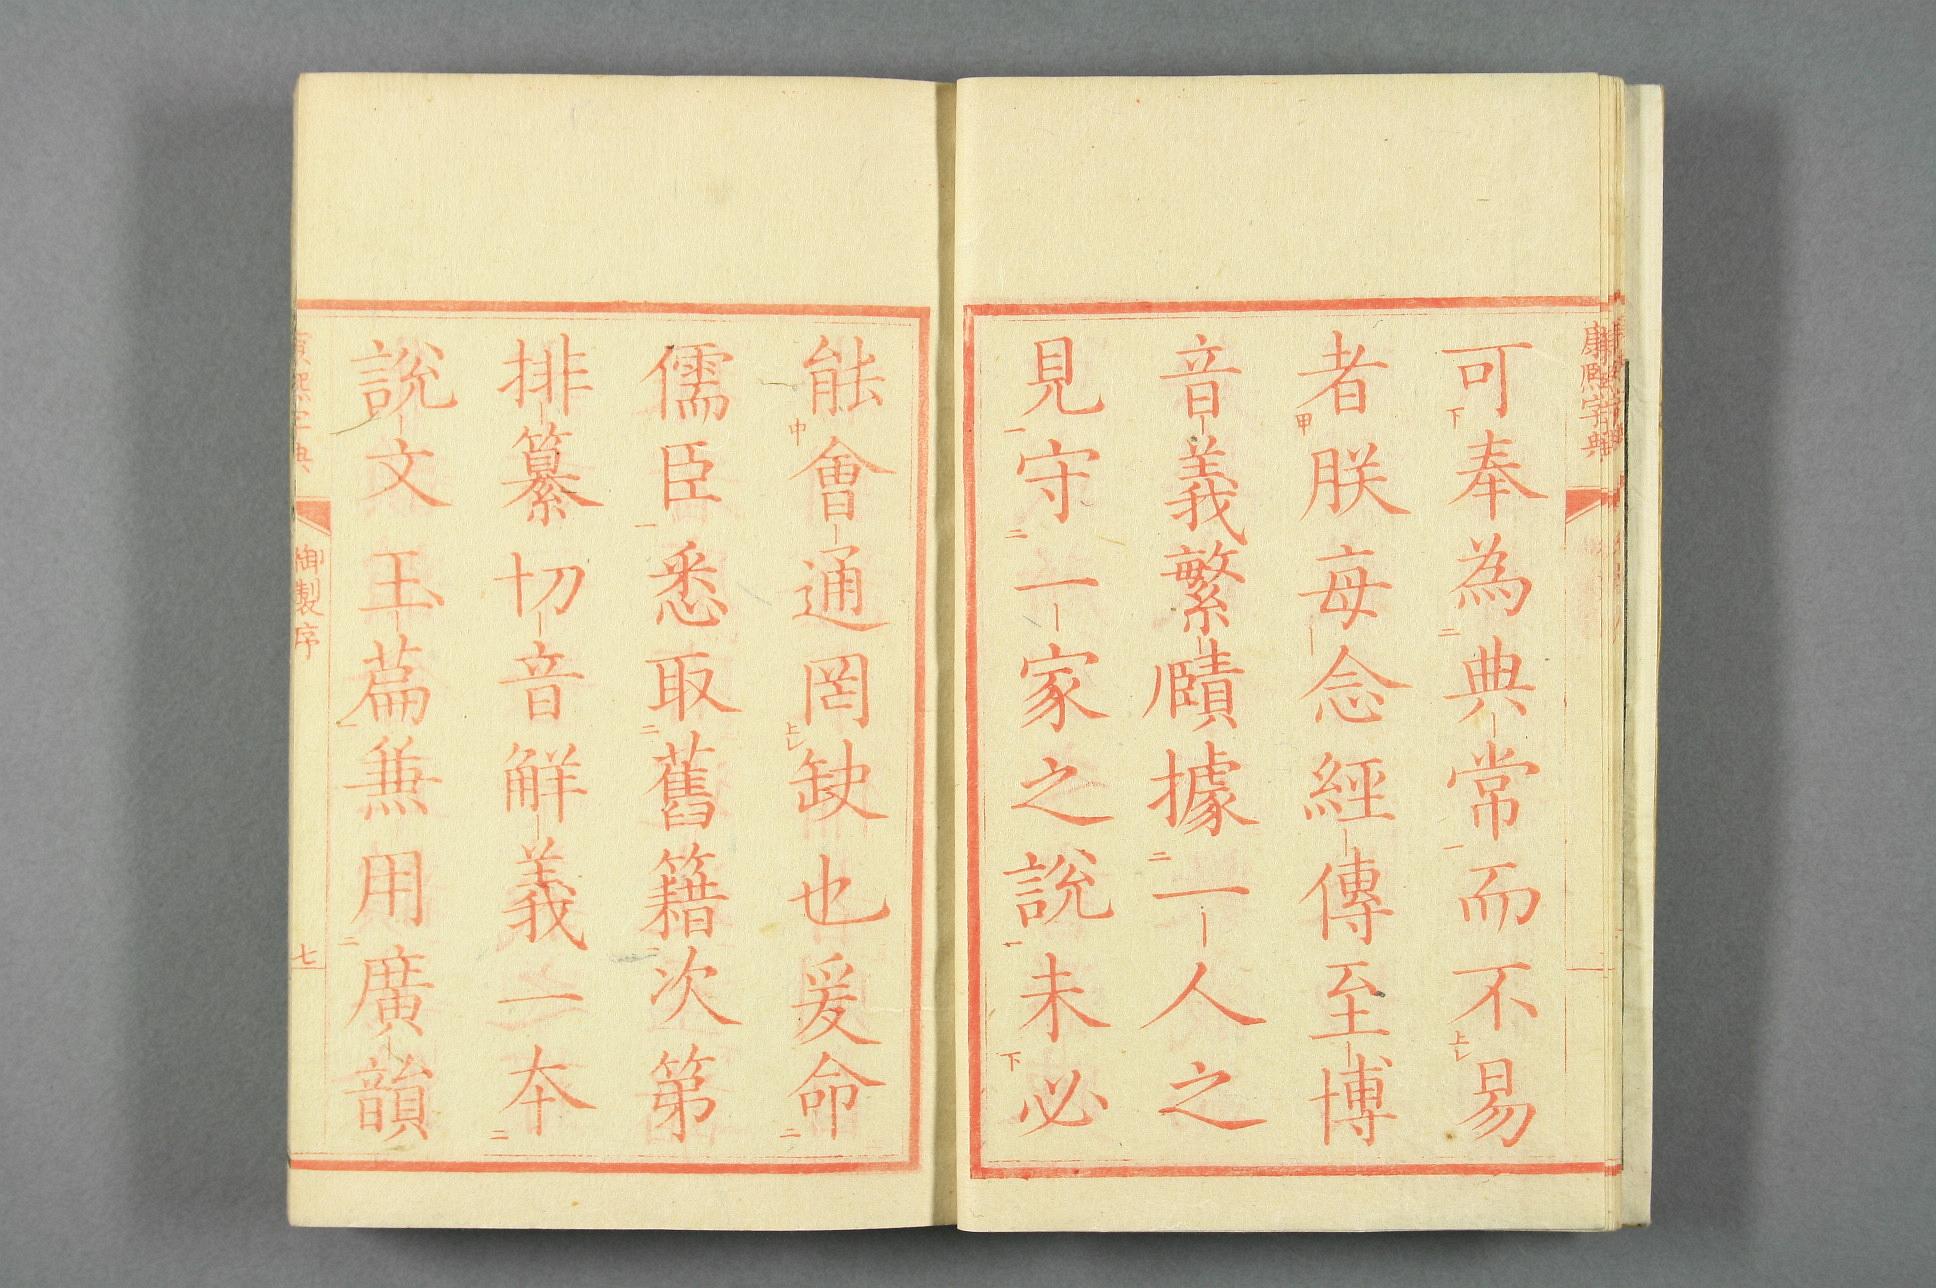 康熙字典
可奉為典常而不易
者朕每念經傳至博
音義繁賾據一人之
見守一家之說未必
能會通罔缺也爰命
儒臣悉取舊籍次第
排纂切音解義一本
說文玉篇兼用廣韻
康熙字典
御製序
七